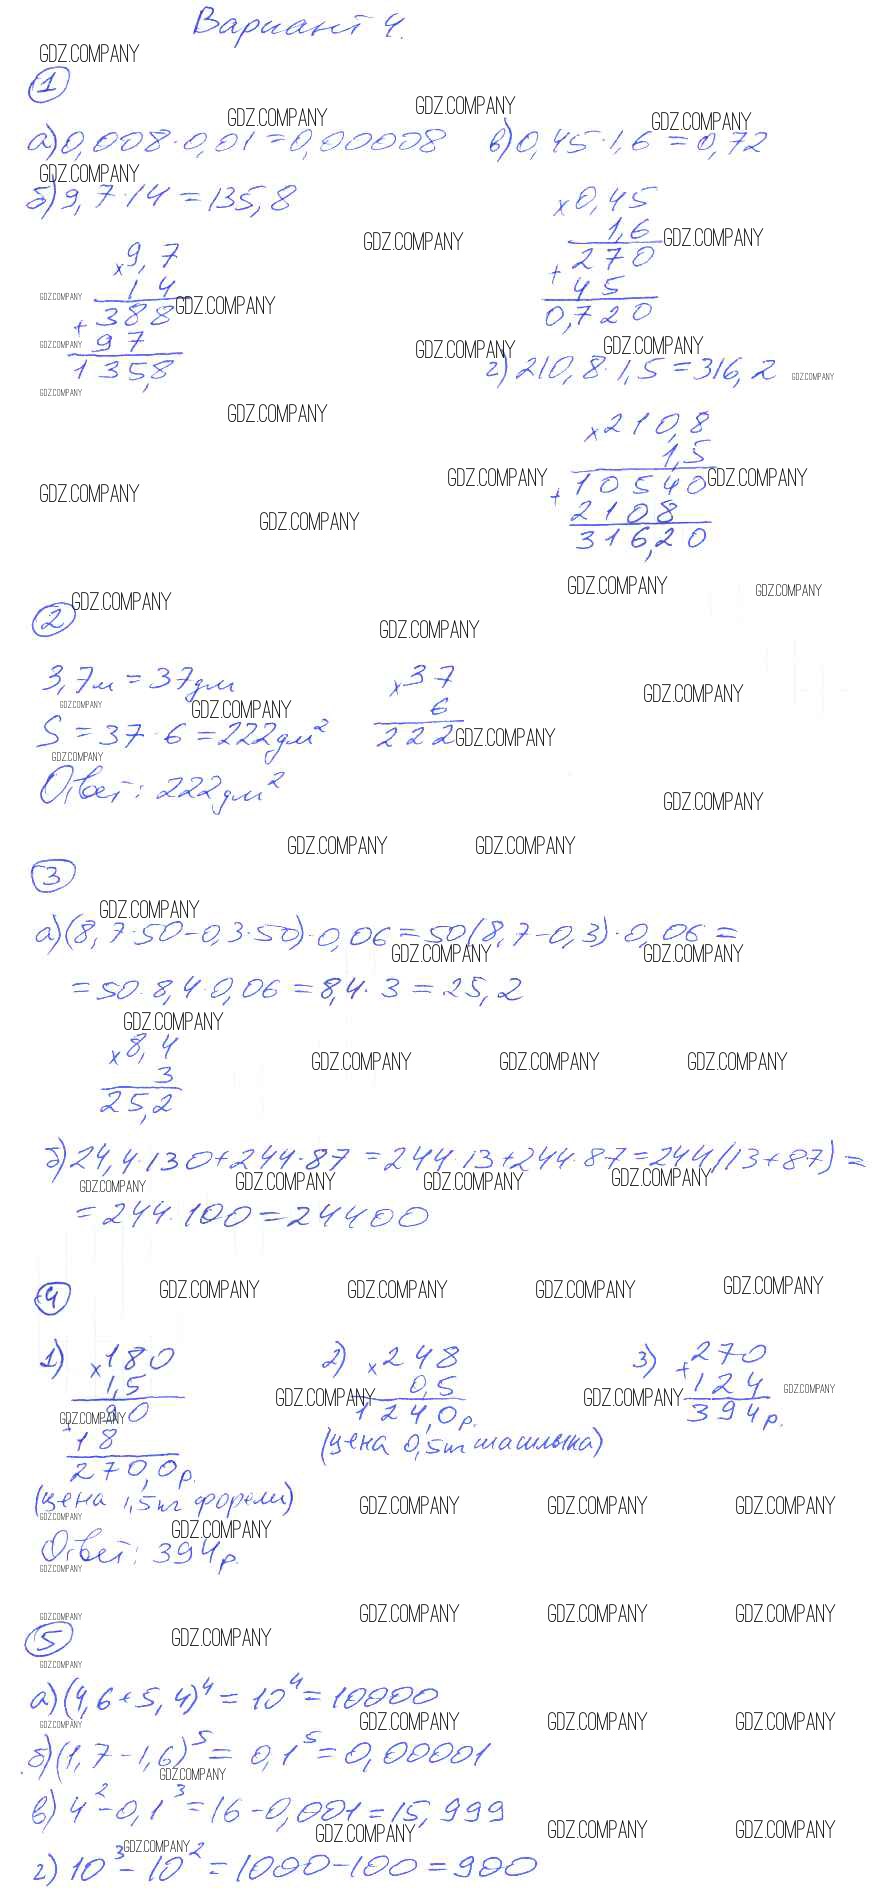 Вариант 4.
GDZ.COMPANY
1
а) 0,008·0,01=0,00008
в) 0,45·1,6=0,72
б) 9,7·14=135,8
×0,45
1,6
+270
45
0,720
×9,7
14
+388
97
135,8
г) 210,8·1,5=316,2
×210,8
1,5
+10540
2108
316,20
2
3,7м=37дм
S=37·6=222дм²
Ответ: 222дм²
×37
6
222
3
а) (8,7·50-0,3·50)·0,06=50(8,7-0,3)·0,06=
=50·8,4·0,06=8,4·3=25,2
×8,4
3
25,2
б) 24,4·130+244·87=244·13+244·87=244(13+87)=
=244·100=24400
4
1) ×180
1,5
+90
18
270,0р.
(цена 1,5кг форели)
2) ×248
0,5
124,0р.
(цена 0,5кг шашлыка)
3) +270
124
394р.
Ответ: 394р.
5
а) (4,6+5,4)⁴=10⁴=10000
б) (1,7-1,6)⁵=0,1⁵=0,00001
в) 4²-0,1³=16-0,001=15,999
г) 10³-10²=1000-100=900